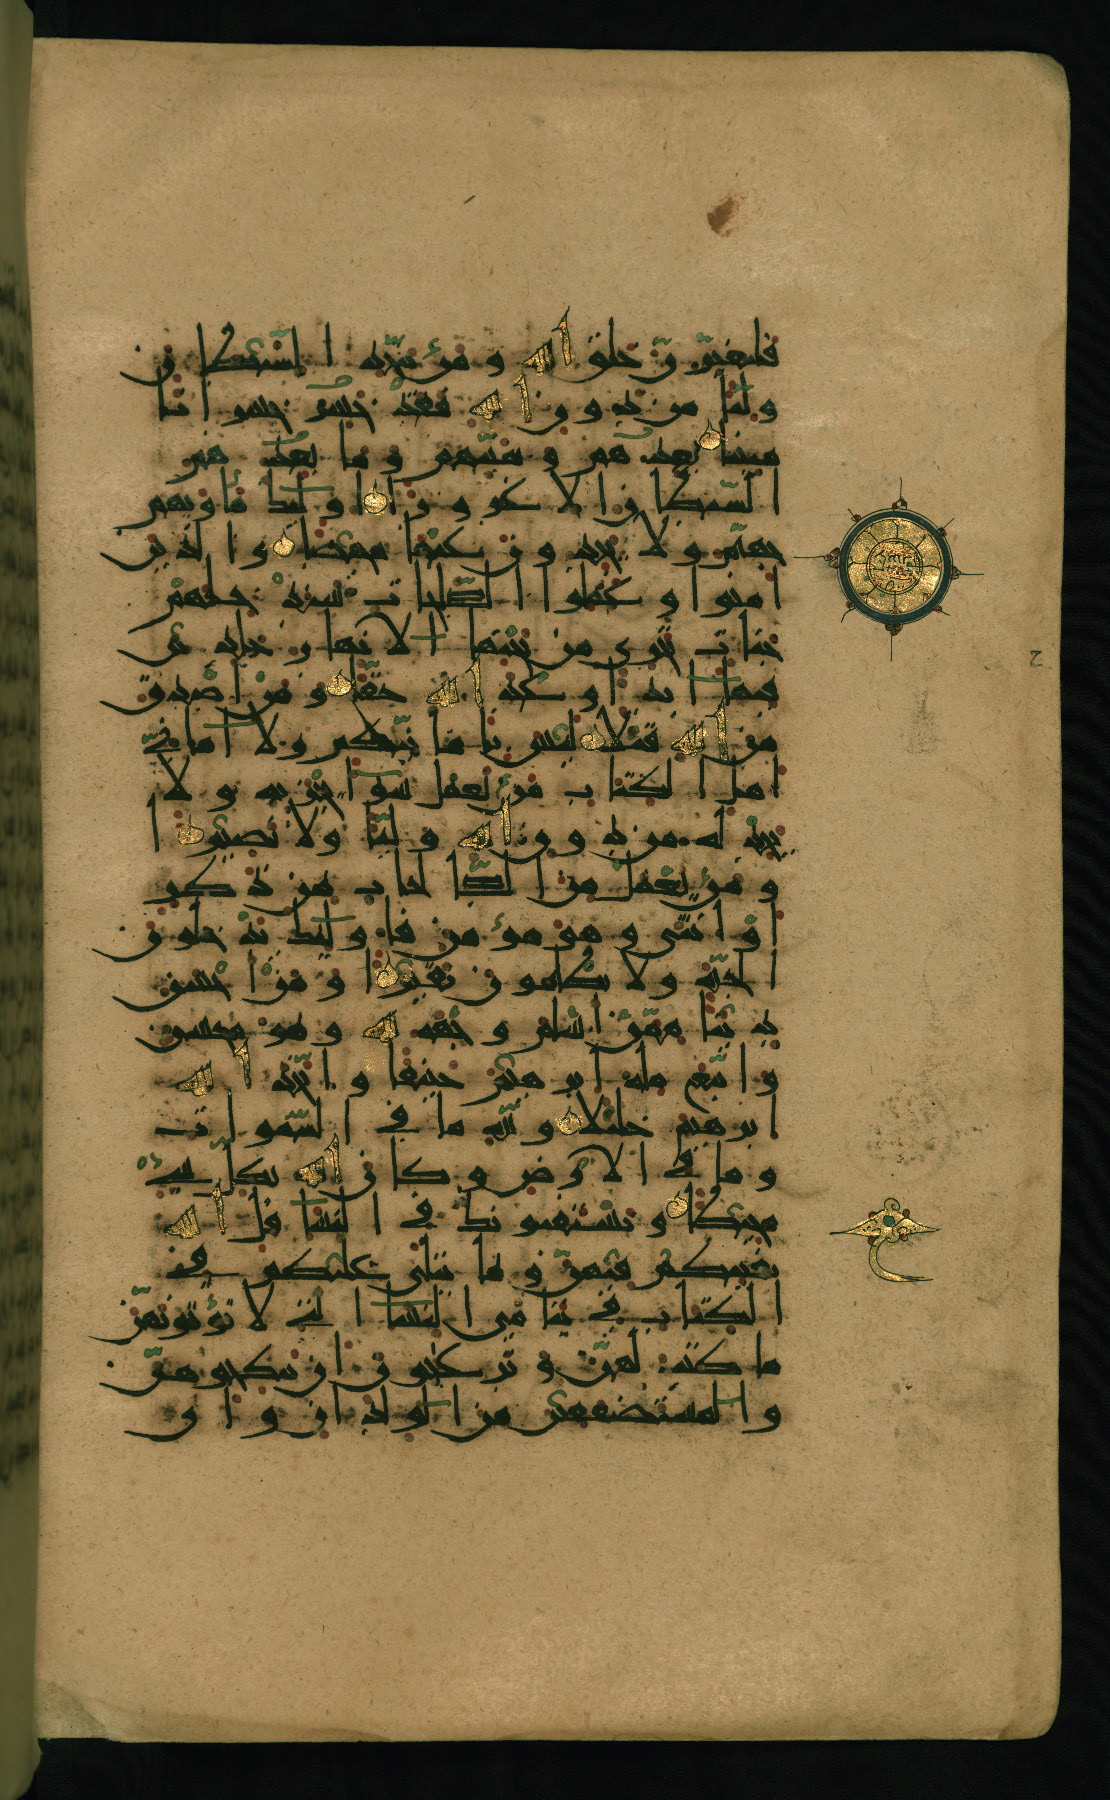 فليغيرن خلق الله ومن يتخذ الشيطان
وليا من دون الله فقد خسر خسرانا
مبينا يعدهم ويمنيهم وما يعدهم
الشيطان الا غرورا اولئك مأويهم
جهنم ولا يجدون عنها محيصا والذين
امنوا وعملوا الصلحات سندخلهم
جنات تجري من تحتها الانهار خلدين
فيها ابدا وعد الله حقا ومن اصدق
من الله قيلا ليس بامانيكم ولا اماني
اهل الكتاب من يعمل سوا يجز به ولا
يجد له من دون الله وليا ولا نصيرا
ومن يعمل من الصالحات من ذكر
او انثى وهو مؤمن فاولئك يدخلون
الجنة ولا يظلمون نقيرا ومن احسن
دينا ممن اسلم وجهه لله وهو محسن
واتبع ملة ابرهيم حنيفا واتخذ الله
ابرهيم خليلا ولله ما في السموات
وما في الارض وكان الله بكل شيء
محيطا ويستفتونك في النسا قل الله
يفتيكم فيهن وما يتلى عليكم في
الكتاب في يتامى النسا التي لا تؤتونهن
ما كتب لهن وترغبون ان تنكحوهن
والمستضعفين من الولدان وان